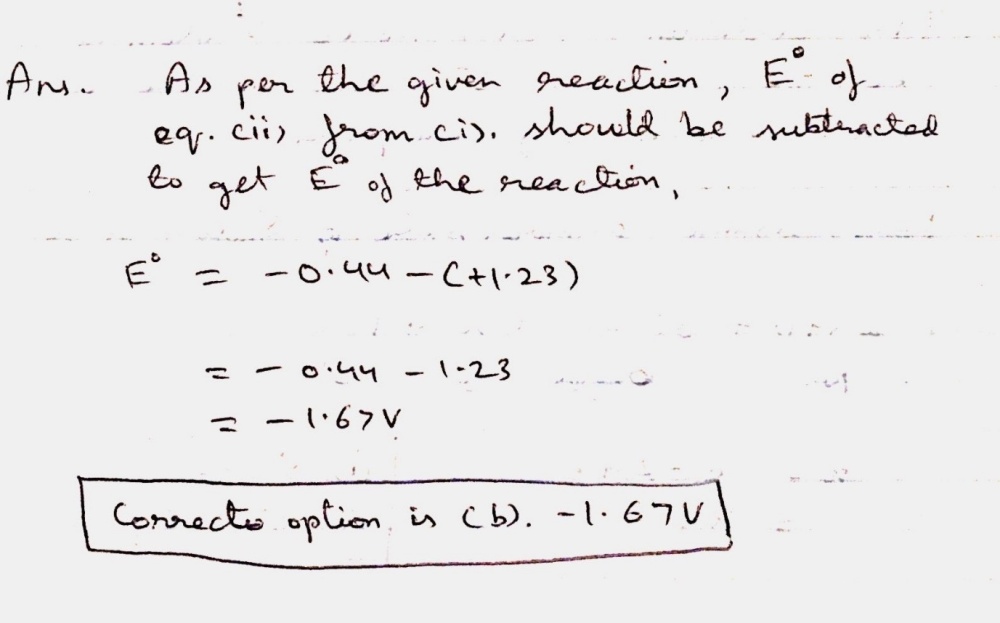 Ans. As per the given reaction, E° of
eq. (ii) from (i). should be subtracted
to get E° of the reaction,
E° = -0.44 - (+1.23)
= - 0.44 - 1.23
= - 1.67V
Correcto option is (b). -1.67V